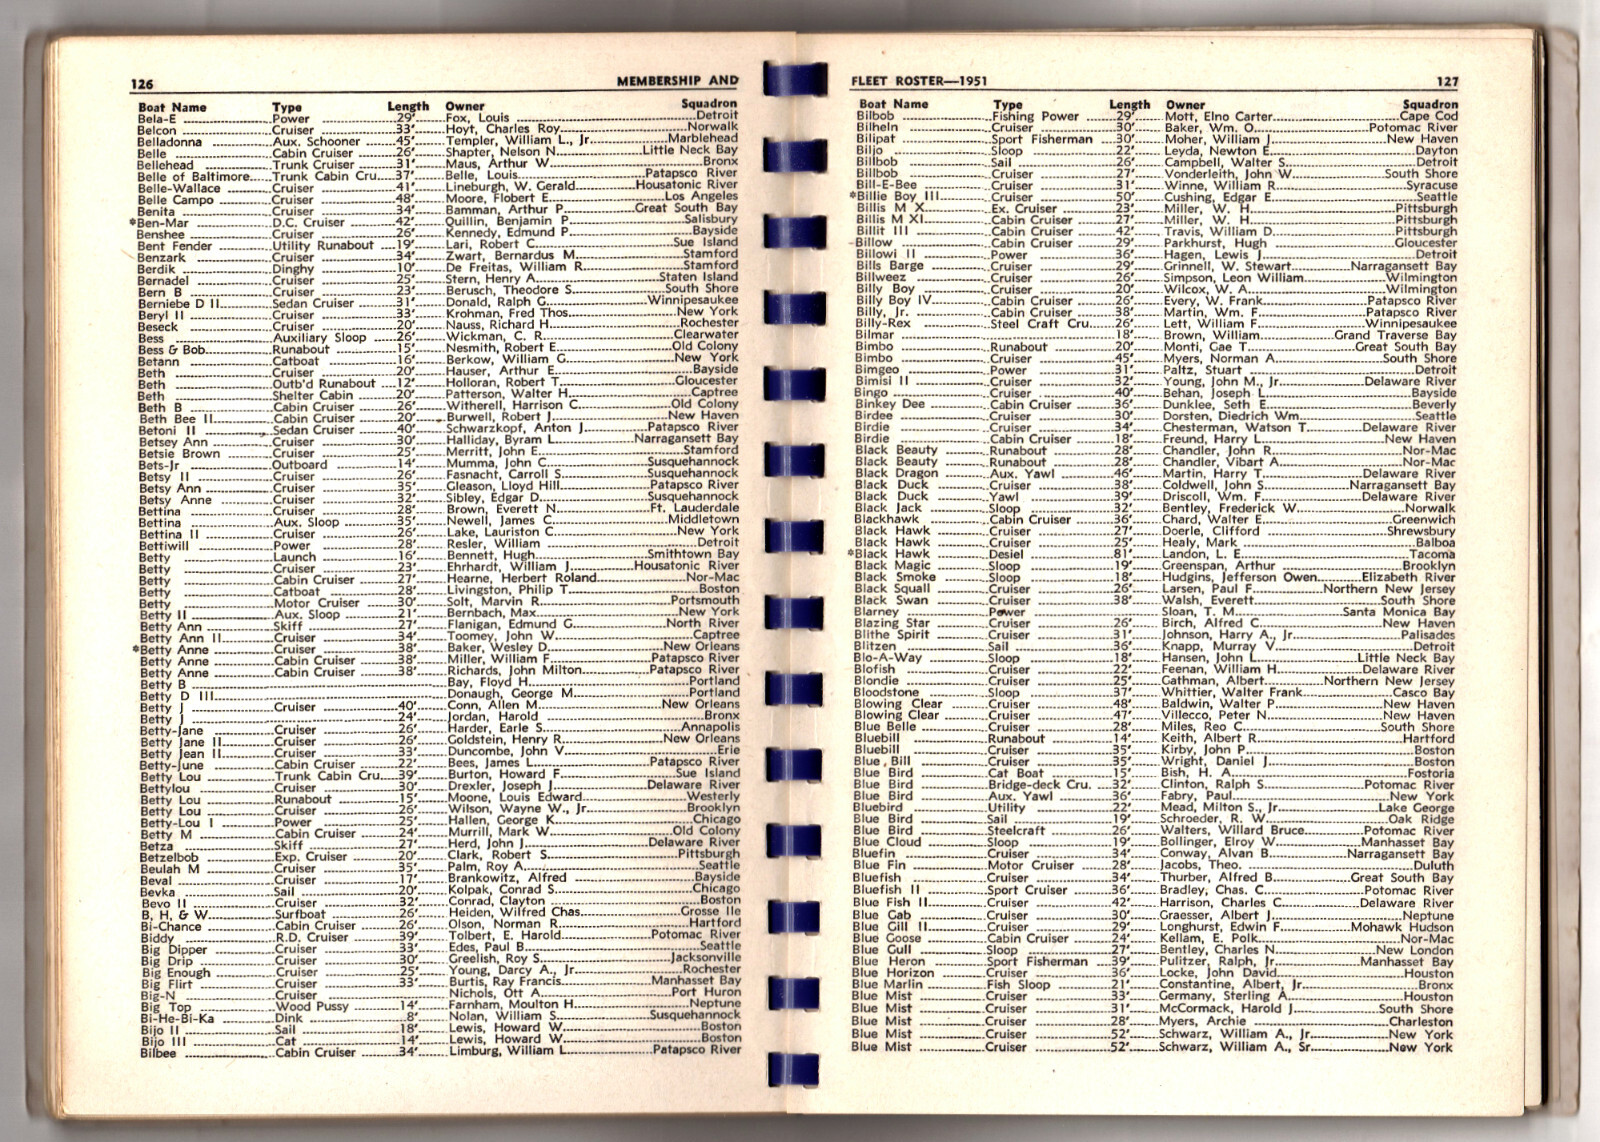 126 MEMBERSHIP AND
Boat Name Type Length Owner Squadron
Bela-E Power 29' Fox, Louis Detroit
Belcon Cruiser 33' Hoyt, Charles Roy Norwalk
Belladonna Aux. Schooner 45' Templer, William L., Jr. Marblehead
Belle Cabin Cruiser 26' Shapter, Nelson N. Little Neck Bay
Bellehead Trunk Cruiser 31' Maus, Arthur W. Bronx
Belle of Baltimore Trunk Cabin Cru. 37' Belle, Louis Patapsco River
Belle-Wallace Cruiser 41' Lineburgh, W. Gerald Housatonic River
Belle Campo Cruiser 48' Moore, Flobert E. Los Angeles
Benita Cruiser 34' Bamman, Arthur P. Great South Bay
*Ben-Mar D.C. Cruiser 42' Quillin, Benjamin P. Salisbury
Benshee Cruiser 26' Kennedy, Edmund P. Bayside
Bent Fender Utility Runabout 19' Lari, Robert C. Sue Island
Benzark Cruiser 34' Zwart, Bernardus M. Stamford
Berdik Dinghy 10' De Freitas, William R. Stamford
Bernadel Cruiser 25' Stern, Henry A. Staten Island
Bern B Cruiser 23' Berusch, Theodore S. South Shore
Berniebe D II Sedan Cruiser 31' Donald, Ralph G. Winnipesaukee
Beryl II Cruiser 33' Krohman, Fred Thos. New York
Beseck Cruiser 20' Nauss, Richard H. Rochester
Bess Auxiliary Sloop 26' Wickman, C. R. Clearwater
Bess & Bob Runabout 15' Nesmith, Robert E. Old Colony
Betann Catboat 16' Berkow, William G. New York
Beth Cruiser 20' Hauser, Arthur E. Bayside
Beth Outb'd Runabout 12' Holloran, Robert T. Gloucester
Beth Shelter Cabin 20' Patterson, Walter H. Captree
Beth B Cabin Cruiser 26' Witherell, Harrison C. Old Colony
Beth Bee II Cabin Cruiser 20' Burwell, Robert J. New Haven
Betoni II Sedan Cruiser 40' Schwarzkopf, Anton J. Patapsco River
Betsey Ann Cruiser 30' Halliday, Byram L. Narragansett Bay
Betsie Brown Cruiser 25' Merritt, John E. Stamford
Bets-Jr Outboard 14' Mumma, John C. Susquehannock
Betsy II Cruiser 26' Fasnacht, Carroll S. Susquehannock
Betsy Ann Cruiser 35' Gleason, Lloyd Hill Patapsco River
Betsy Anne Cruiser 32' Sibley, Edgar D. Susquehannock
Bettina Cruiser 28' Brown, Everett N. Ft. Lauderdale
Bettina Aux. Sloop 35' Newell, James C. Middletown
Bettina II Cruiser 26' Lake, Lauriston C. New York
Bettiwill Power 28' Resler, William Detroit
Betty Launch 16' Bennett, Hugh Smithtown Bay
Betty Cruiser 23' Ehrhardt, William J. Housatonic River
Betty Cabin Cruiser 27' Hearne, Herbert Roland Nor-Mac
Betty Catboat 28' Livingston, Philip T. Boston
Betty Motor Cruiser 30' Solt, Marvin R. Portsmouth
Betty II Aux. Sloop 21' Bernbach, Max New York
Betty Ann Skiff 27' Flanigan, Edmund G. North River
Betty Ann II Cruiser 34' Toomey, John W. Captree
*Betty Anne Cruiser 38' Baker, Wesley D. New Orleans
Betty Anne Cabin Cruiser 38' Miller, William F. Patapsco River
Betty Anne Cabin Cruiser 38' Richards, John Milton Patapsco River
Betty B Bay, Floyd H. Portland
Betty D III Donaugh, George M. Portland
Betty J Cruiser 40' Conn, Allen M. New Orleans
Betty J 24' Jordan, Harold Bronx
Betty-Jane Cruiser 26' Harder, Earle S. Annapolis
Betty Jane II Cruiser 26' Goldstein, Henry R. New Orleans
Betty Jean II Cruiser 33' Duncombe, John V. Erie
Betty-June Cabin Cruiser 22' Bees, James L. Patapsco River
Betty Lou Trunk Cabin Cru. 39' Burton, Howard F. Sue Island
Bettylou Cruiser 30' Drexler, Joseph J. Delaware River
Betty Lou Runabout 15' Moone, Louis Edward Westerly
Betty Lou Cruiser 26' Wilson, Wayne W., Jr. Brooklyn
Betty-Lou I Power 25' Hallen, George K. Chicago
Betty M Cabin Cruiser 24' Murrill, Mark W. Old Colony
Betza Skiff 27' Herd, John J. Delaware River
Betzelbob Exp. Cruiser 20' Clark, Robert S. Pittsburgh
Beulah M Cruiser 35' Palm, Roy A. Seattle
Beval Cruiser 17' Brankowitz, Alfred Bayside
Bevka Sail 20' Kolpak, Conrad S. Chicago
Bevo II Cruiser 32' Conrad, Clayton Boston
B, H, & W Surfboat 26' Heiden, Wilfred Chas. Grosse Ile
Bi-Chance Cabin Cruiser 26' Olson, Norman R. Hartford
Biddy R.D. Cruiser 39' Tolbert, E. Harold Potomac River
Big Dipper Cruiser 33' Edes, Paul B. Seattle
Big Drip Cruiser 30' Greelish, Roy S. Jacksonville
Big Enough Cruiser 25' Young, Darcy A., Jr. Rochester
Big Flirt Cruiser 33' Burtis, Ray Francis Manhasset Bay
Big-N Cruiser Nichols, Ott A. Port Huron
Big Top Wood Pussy 14' Farnham, Moulton H. Neptune
Bi-He-Bi-Ka Dink 8' Nolan, William S. Susquehannock
Bijo II Sail 18' Lewis, Howard W. Boston
Bijo III Cat 14' Lewis, Howard W. Boston
Bilbee Cabin Cruiser 34' Limburg, William L. Patapsco River
FLEET ROSTER—1951 127
Boat Name Type Length Owner Squadron
Bilbob Fishing Power 29' Mott, Elno Carter Cape Cod
Bilheln Cruiser 30' Baker, Wm. O. Potomac River
Bilipat Sport Fisherman 30' Moher, William J. New Haven
Biljo Sloop 22' Leyda, Newton E. Dayton
Billbob Sail 26' Campbell, Walter S. Detroit
Billbob Cruiser 27' Vonderleith, John W. South Shore
Bill-E-Bee Cruiser 31' Winne, William R. Syracuse
*Billie Boy III Cruiser 50' Cushing, Edgar E. Seattle
Billis M X Ex. Cruiser 23' Miller, W. H. Pittsburgh
Billis M XI Cabin Cruiser 27' Miller, W. H. Pittsburgh
Billit III Cabin Cruiser 42' Travis, William D. Pittsburgh
Billow Cabin Cruiser 29' Parkhurst, Hugh Gloucester
Billowi II Power 36' Hagen, Lewis J. Detroit
Bills Barge Cruiser 29' Grinnell, W. Stewart Narragansett Bay
Billweez Cruiser 26' Simpson, Leon William Wilmington
Billy Boy Cruiser 20' Wilcox, W. A. Wilmington
Billy Boy IV Cabin Cruiser 26' Every, W. Frank Patapsco River
Billy, Jr. Cabin Cruiser 38' Martin, Wm. F. Patapsco River
Billy-Rex Steel Craft Cru. 26' Lett, William F. Winnipesaukee
Bilmar 18' Brown, William Grand Traverse Bay
Bimbo Runabout 20' Monti, Gae T. Great South Bay
Bimbo Cruiser 45' Myers, Norman A. South Shore
Bimgeo Power 31' Paltz, Stuart Detroit
Bimisi II Cruiser 32' Young, John M., Jr. Delaware River
Bingo Cruiser 40' Behan, Joseph L. Bayside
Binkey Dee Cabin Cruiser 36' Dunklee, Seth E. Beverly
Birdee Cruiser 30' Dorsten, Diedrich Wm. Seattle
Birdie Cruiser 34' Chesterman, Watson T. Delaware River
Birdie Cabin Cruiser 18' Freund, Harry L. New Haven
Black Beauty Runabout 28' Chandler, John R. Nor-Mac
Black Beauty Runabout 28' Chandler, Vibart A. Nor-Mac
Black Dragon Aux. Yawl 46' Martin, Harry T. Delaware River
Black Duck Cruiser 38' Coldwell, John S. Narragansett Bay
Black Duck Yawl 39' Driscoll, Wm. F. Delaware River
Black Jack Sloop 32' Bentley, Frederick W. Norwalk
Blackhawk Cabin Cruiser 36' Chard, Walter E. Greenwich
Black Hawk Cruiser 27' Doerle, Clifford Shrewsbury
Black Hawk Cruiser 25' Healy, Mark Balboa
*Black Hawk Desiel 81' Landon, L. E. Tacoma
Black Magic Sloop 19' Greenspan, Arthur Brooklyn
Black Smoke Sloop 18' Hudgins, Jefferson Owen Elizabeth River
Black Squall Cruiser 26' Larsen, Paul F. Northern New Jersey
Black Swan Cruiser 38' Walsh, Everett South Shore
Blarney Power Sloan, T. M. Santa Monica Bay
Blazing Star Cruiser 26' Birch, Alfred C. New Haven
Blithe Spirit Cruiser 31' Johnson, Harry A., Jr. Palisades
Blitzen Sail 36' Knapp, Murray V. Detroit
Blo-A-Way Sloop 18' Hansen, John L. Little Neck Bay
Blofish Cruiser 22' Feenan, William H. Delaware River
Blondie Cruiser 25' Gathman, Albert Northern New Jersey
Bloodstone Sloop 37' Whittier, Walter Frank Casco Bay
Blowing Clear Cruiser 48' Baldwin, Walter P. New Haven
Blowing Clear Cruiser 47' Villecco, Peter N. New Haven
Blue Belle Cruiser 28' Miles, Reo C. South Shore
Bluebill Runabout 14' Keith, Albert R. Hartford
Bluebill Cruiser 35' Kirby, John P. Boston
Blue Bill Cruiser 35' Wright, Daniel J. Boston
Blue Bird Cat Boat 15' Bish, H. A. Fostoria
Blue Bird Bridge-deck Cru. 32' Clinton, Ralph S. Potomac River
Blue Bird Aux. Yawl 36' Fabry, Paul New York
Bluebird Utility 22' Mead, Milton S., Jr. Lake George
Blue Bird Sail 19' Schroeder, R. W. Oak Ridge
Blue Bird Steelcraft 26' Walters, Willard Bruce Potomac River
Blue Cloud Sloop 19' Bollinger, Elroy W. Manhasset Bay
Bluefin Cruiser 34' Conway, Alvan B. Narragansett Bay
Blue Fin Motor Cruiser 28' Jacobs, Theo. Duluth
Bluefish Cruiser 34' Thurber, Alfred B. Great South Bay
Bluefish II Sport Cruiser 36' Bradley, Chas. C. Potomac River
Blue Fish II Cruiser 42' Harrison, Charles C. Delaware River
Blue Gab Cruiser 30' Graesser, Albert J. Neptune
Blue Gill II Cruiser 29' Longhurst, Edwin F. Mohawk Hudson
Blue Goose Cabin Cruiser 24' Kellam, E. Polk Nor-Mac
Blue Gull Sloop 27' Bentley, Charles N. New London
Blue Heron Sport Fisherman 39' Pulitzer, Ralph, Jr. Manhasset Bay
Blue Horizon Cruiser 36' Locke, John David Houston
Blue Marlin Fish Sloop 21' Constantine, Albert, Jr. Bronx
Blue Mist Cruiser 33' Germany, Sterling A. Houston
Blue Mist Cruiser 31' McCormack, Harold J. South Shore
Blue Mist Cruiser 28' Myers, Archie Charleston
Blue Mist Cruiser 52' Schwarz, William A., Jr. New York
Blue Mist Cruiser 52' Schwarz, William A., Sr. New York